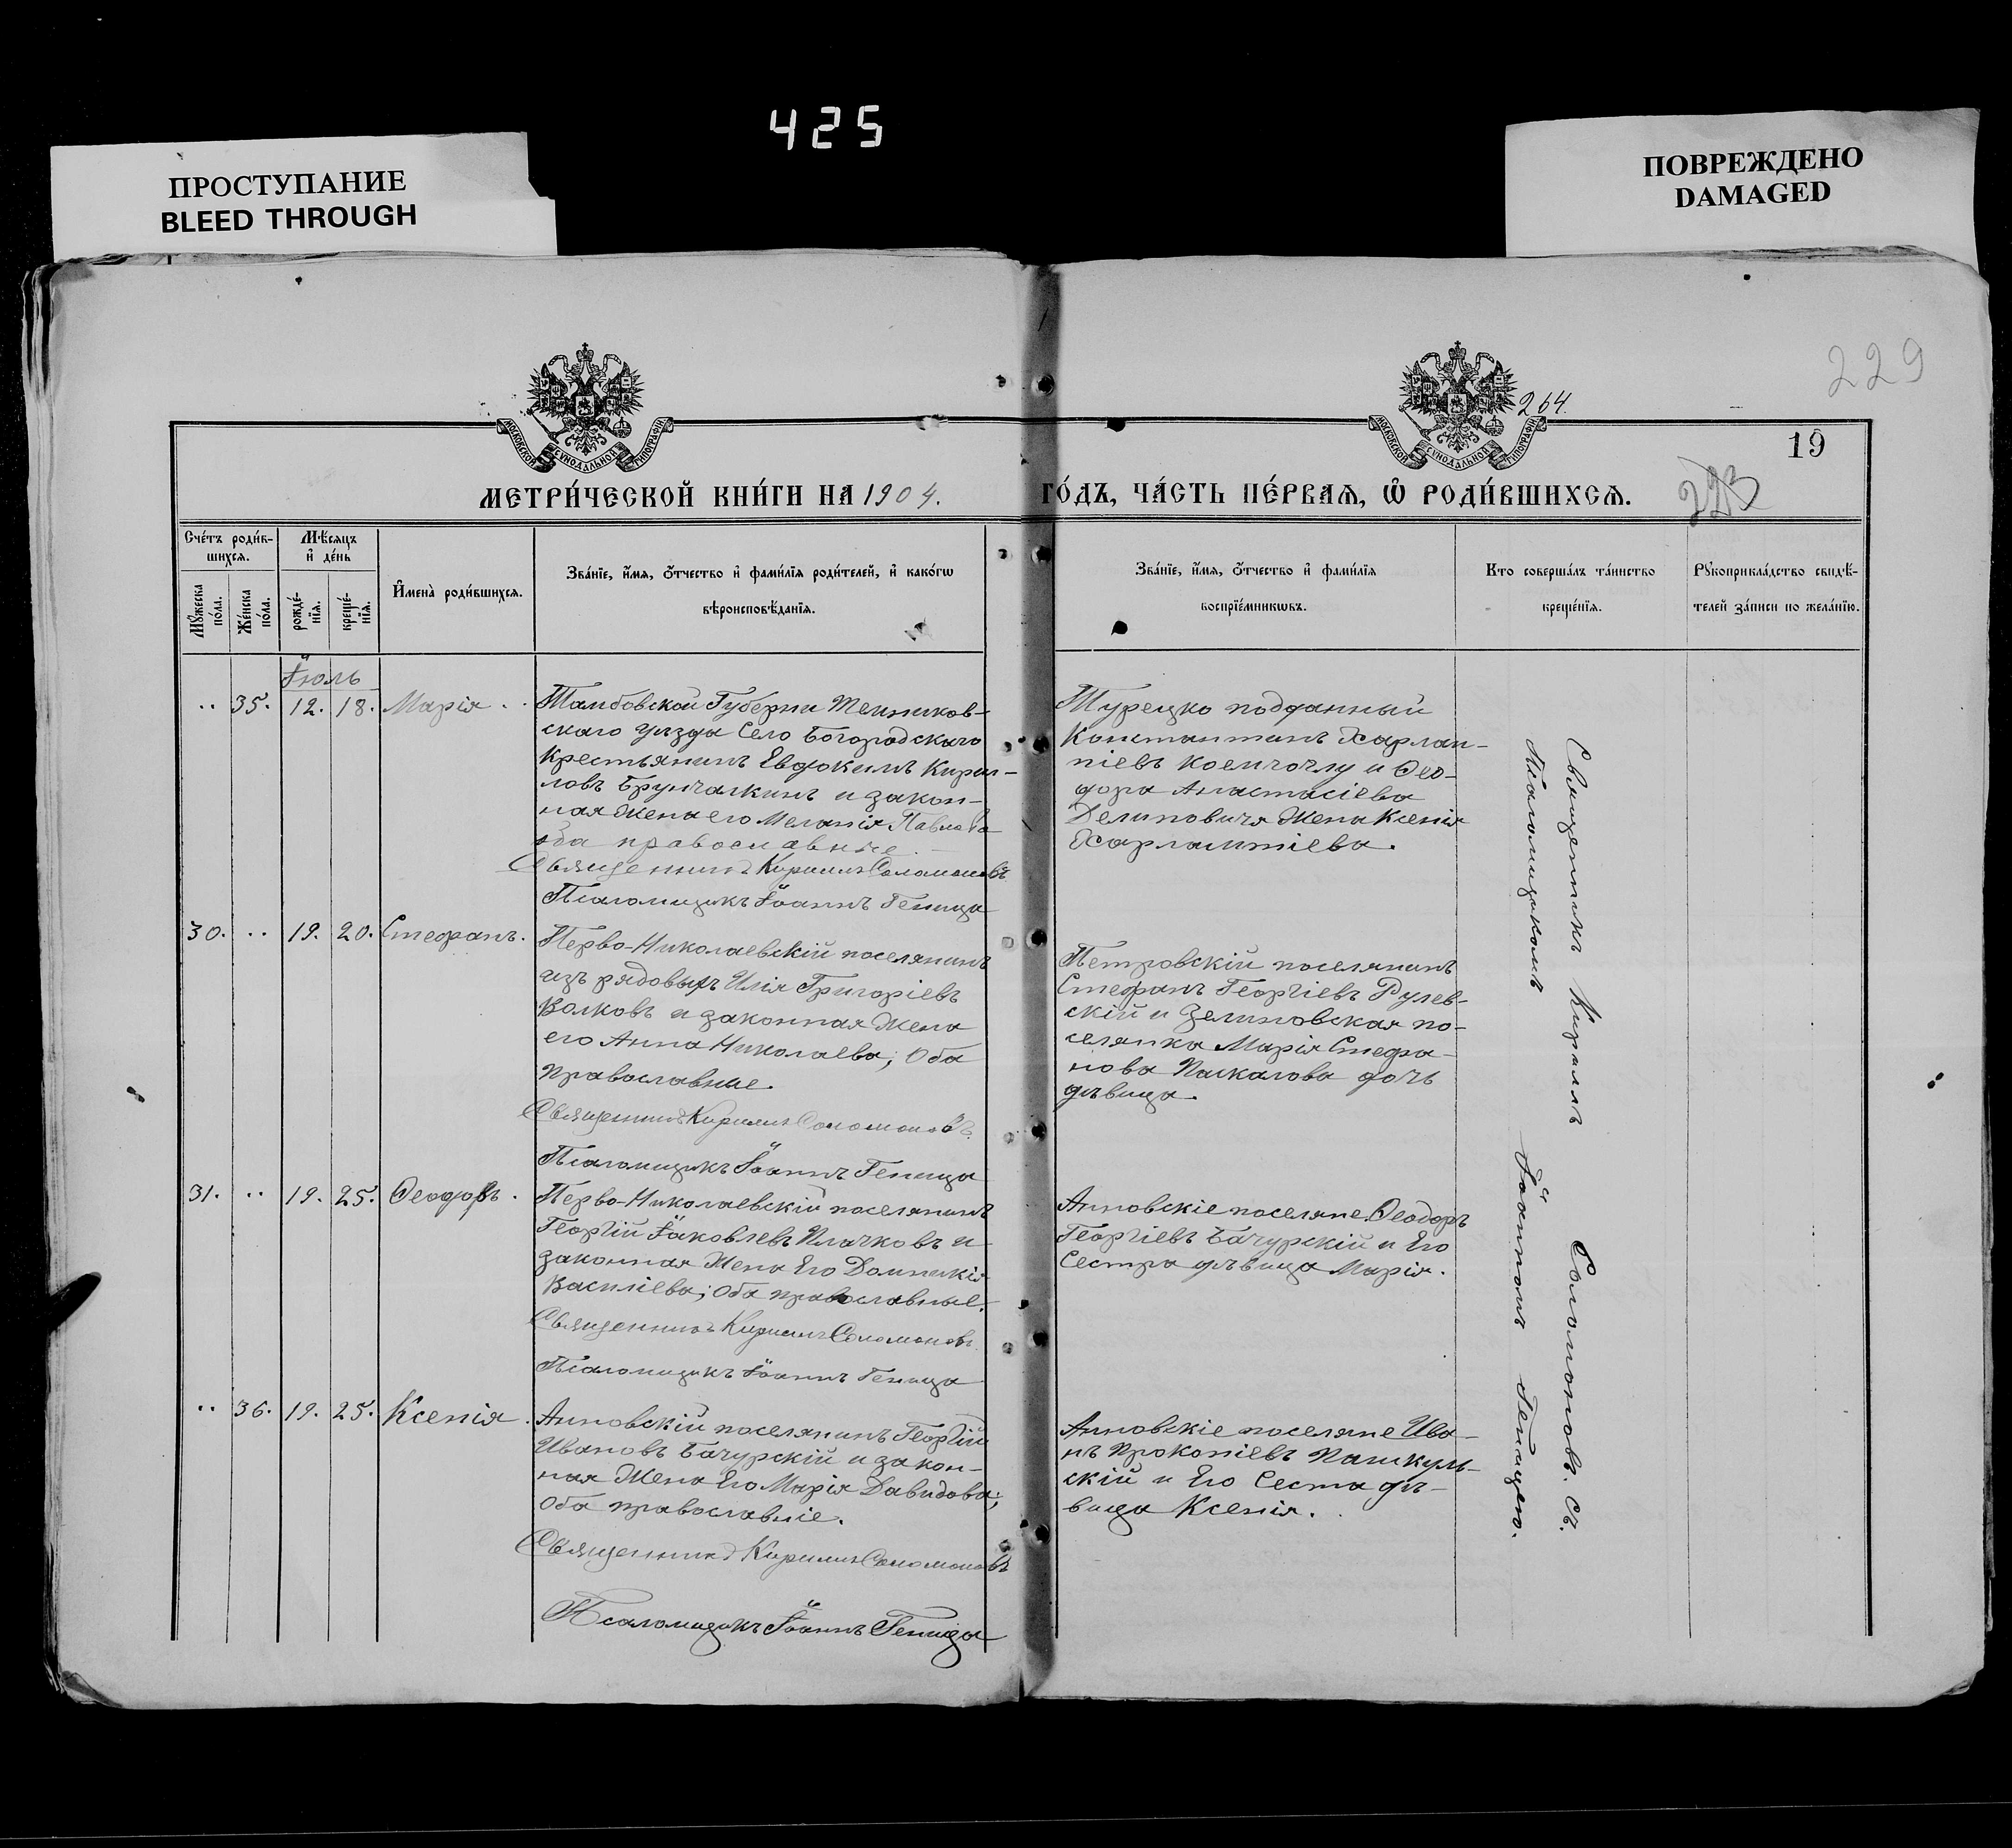 425
ПРОСТУПАНИЕ
BLEED THROUGH
ПОВРЕЖДЕНО
DAMAGED
229
264.
19
МОСКОВСКОЙ СѴНОДАЛЬНОЙ ТИПОГРАФІИ
МОСКОВСКОЙ СѴНОДАЛЬНОЙ ТИПОГРАФІИ
МЕТРИ́ЧЕСКОЙ КНИ́ГИ НА 1904.
ГО́ДЪ, ЧА́СТЬ ПЕ́РВАѦ, Ѽ РОДИ́ВШИХСѦ.
223
Сче́тъ роди́в-
шихсѧ.
Мѣ́сѧцъ
и҆ де́нь
Мꙋ́жеска по́ла.
Же́нска по́ла.
рожде́-
нїѧ.
креще́-
нїѧ.
И҆мена̀ роди́вшихсѧ.
Зва́нїе, и҆́мѧ, ѻ҆́тчество и҆ фами́лїѧ роди́телей, и҆ како́гѡ
вѣроисповѣ́данїѧ.
Зва́нїе, и҆́мѧ, ѻ҆́тчество и҆ фами́лїѧ
воспрїе́мникѡвъ.
Кто соверша́лъ та́инство
креще́нїѧ.
Рꙋкоприкла́дство свидѣ́-
телей за́писи по жела́нїю.
Іюль
·· 35. 12. 18. Марія ··
Тамбовской Губерни Темников-
скаго уѣзда Село Богородскаго
Крестьянинъ Евдокимъ Кирил-
ловъ Брунчалкинъ и закон-
ная Жена его Меланія Павлова
оба православные.
Священникъ Кириллъ Соломоновъ
Псаломщикъ Іоаннъ Геница
Турецко подданный
Константинъ Харлам-
піевъ Коемчоглу и Ѳео-
дора Анастасіева
Делиповичя Жена Ксенія
Харлампіева.
30. ·· 19. 20. Стефанъ.
Перво-Николаевскій поселянинъ
изъ рядовыхъ Илія Григоріевъ
Волковъ и законная Жена
его Анна Николаева; Оба
православные.
Священникъ Кириллъ Соломоновъ.
Псаломщикъ Іоаннъ Геница
Петровскій поселянинъ
Стефанъ Георгіевъ Рулев-
скій и Зелиновская по-
селянка Марія Стефа-
нова Паскалова дочь
дѣвица.
31. ·· 19. 25. Ѳеодоръ.
Перво-Николаевскій поселянинъ
Георгій Іаковлевъ Плачковъ и
законная Жена Его Домникія
Василіева; Оба православные.
Священникъ Кириллъ Соломоновъ.
Псаломщикъ Іоаннъ Геница
Анновскіе поселяне Ѳеодоръ
Георгіевъ Бачурскій и Его
Сестра дѣвица Марія.
·· 36. 19. 25. Ксенія.
Анновскій поселянинъ Георгій
Ивановъ Бачурскій и закон-
ная Жена Его Марія Давидова;
Оба православніе.
Священникъ Кириллъ Соломоновъ
Псаломщикъ Іоаннъ Геница
Анновскіе поселяне Ива-
нъ Прокопіевъ Пашкуль-
скій и Его Сеста дѣ-
вица Ксенія.
Священникъ Кириллъ Соломоновъ. Съ
Псаломщикомъ Іоанномъ Геницею.